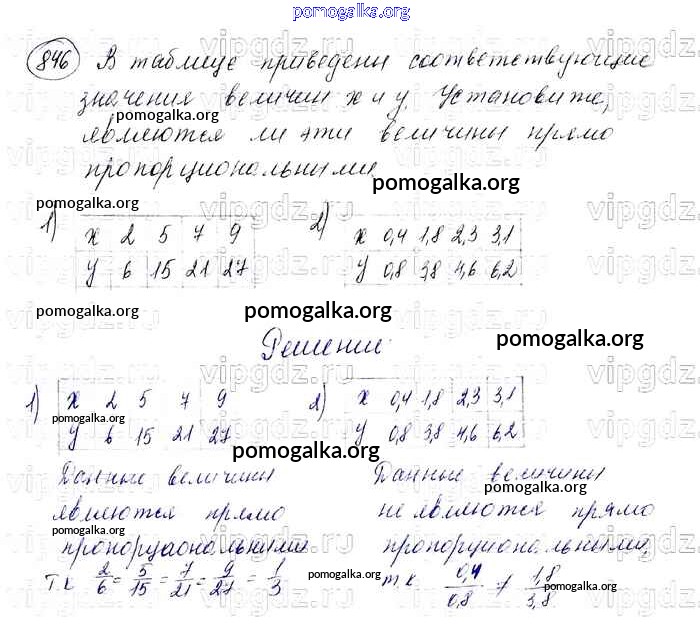 pomogalka.org
846 В таблице приведены соответствующие
значения величин x и y. Установите,
являются ли эти величины прямо
пропорциональными.
pomogalka.org
pomogalka.org
1) x 2 5 7 9
y 6 15 21 27
2) x 0,4 1,8 2,3 3,1
y 0,8 3,8 4,6 6,2
pomogalka.org
pomogalka.org
pomogalka.org
pomogalka.org
Решение
1) x 2 5 7 9
y 6 15 21 27
pomogalka.org
2) x 0,4 1,8 2,3 3,1
y 0,8 3,8 4,6 6,2
pomogalka.org
pomogalka.org
Данные величины
являются прямо
пропорциональными
т.к 2/6 = 5/15 = 7/21 = 9/27 = 1/3
pomogalka.org
Данные величины
не являются прямо
пропорциональными,
т.к 0,4/0,8 ≠ 1,8/3,8
pomogalka.org
pomogalka.org
pomogalka.org
pomogalka.org
vipgdz.ru